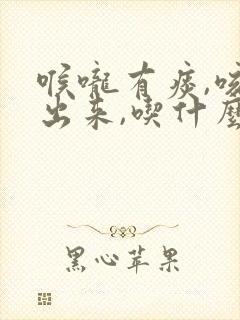 喉嚨有痰,咳
出来,喫什麼
黑心苹果